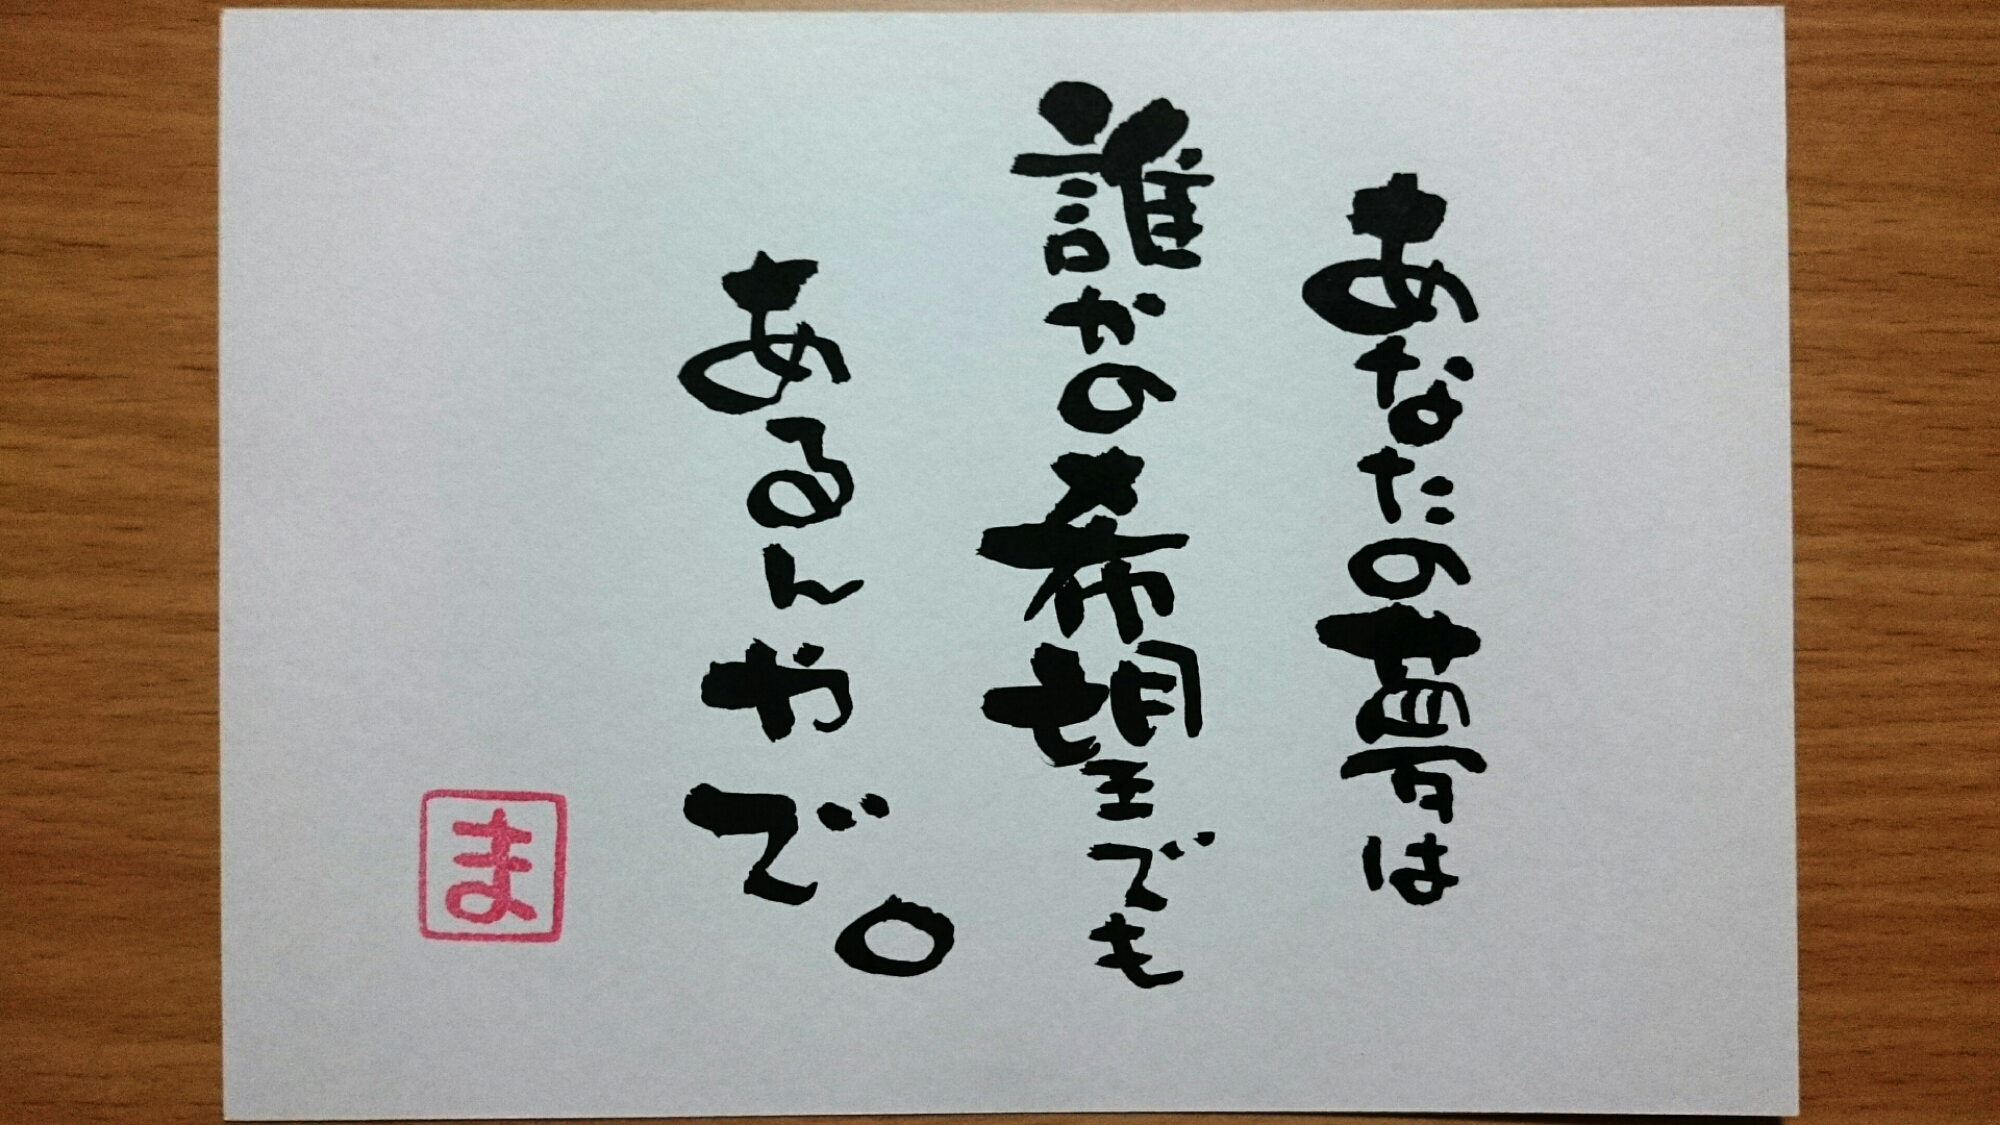 あなたの夢は
誰かの希望でも
あるんやで。
ま